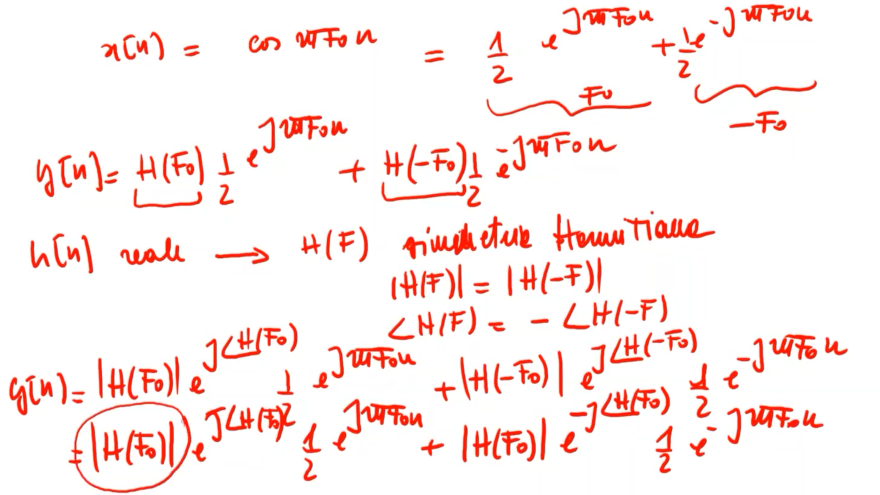 x[n] = cos 2πF₀n = 1/2 e^{j2πF₀n} + 1/2 e^{-j2πF₀n}
F₀ -F₀
y[n] = H(F₀) 1/2 e^{j2πF₀n} + H(-F₀) 1/2 e^{-j2πF₀n}
h[n] reale → H(F) simmetria Hermitiana
|H(F)| = |H(-F)|
∠H(F) = - ∠H(-F)
y[n] = |H(F₀)| e^{j∠H(F₀)} 1/2 e^{j2πF₀n} + |H(-F₀)| e^{j∠H(-F₀)} 1/2 e^{-j2πF₀n}
= |H(F₀)| e^{j∠H(F₀)} 1/2 e^{j2πF₀n} + |H(F₀)| e^{-j∠H(F₀)} 1/2 e^{-j2πF₀n}